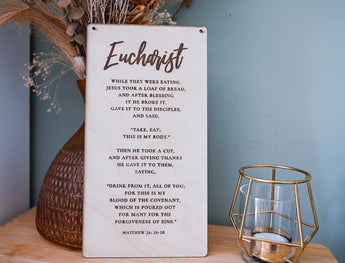 Eucharist
WHILE THEY WERE EATING,
JESUS TOOK A LOAF OF BREAD,
AND AFTER BLESSING
IT HE BROKE IT,
GAVE IT TO THE DISCIPLES,
AND SAID,
"TAKE, EAT;
THIS IS MY BODY."
THEN HE TOOK A CUP,
AND AFTER GIVING THANKS
HE GAVE IT TO THEM,
SAYING,
"DRINK FROM IT, ALL OF YOU;
FOR THIS IS MY
BLOOD OF THE COVENANT,
WHICH IS POURED OUT
FOR MANY FOR THE
FORGIVENESS OF SINS."
MATTHEW 26: 26-28